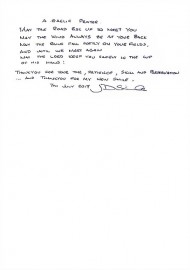 A GAELIC PRAYER
MAY THE ROAD RISE UP TO MEET YOU
MAY THE WIND ALWAYS BE AT YOUR BACK
MAY THE RAINS FALL SOFTLY ON YOUR FIELDS,
AND UNTIL WE MEET AGAIN
MAY THE LORD KEEP YOU SAFELY IN THE CUP
OF HIS HAND!
THANKYOU FOR YOUR TIME, PATIENCE, SKILL AND
... AND THANKYOU FOR MY NEW SMILE.
JULY